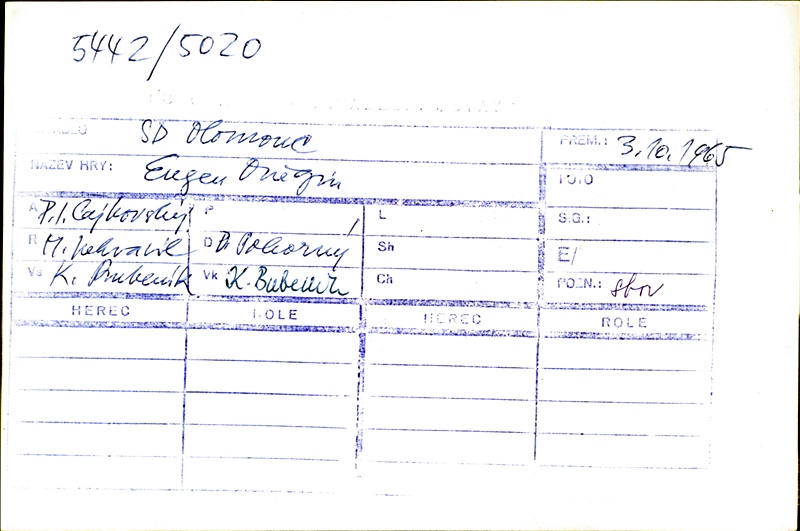 5442/5020
SD Olomouc PREM.: 3.10.1965
NÁZEV HRY: Eugen Oněgin FOTO
A P. I. Čajkovskij P L S.G.:
R D Pokorný Sh E/
Vs K. Bubeník Vk K. Bubeník Ch POZN.: sbor
HEREC ROLE HEREC ROLE